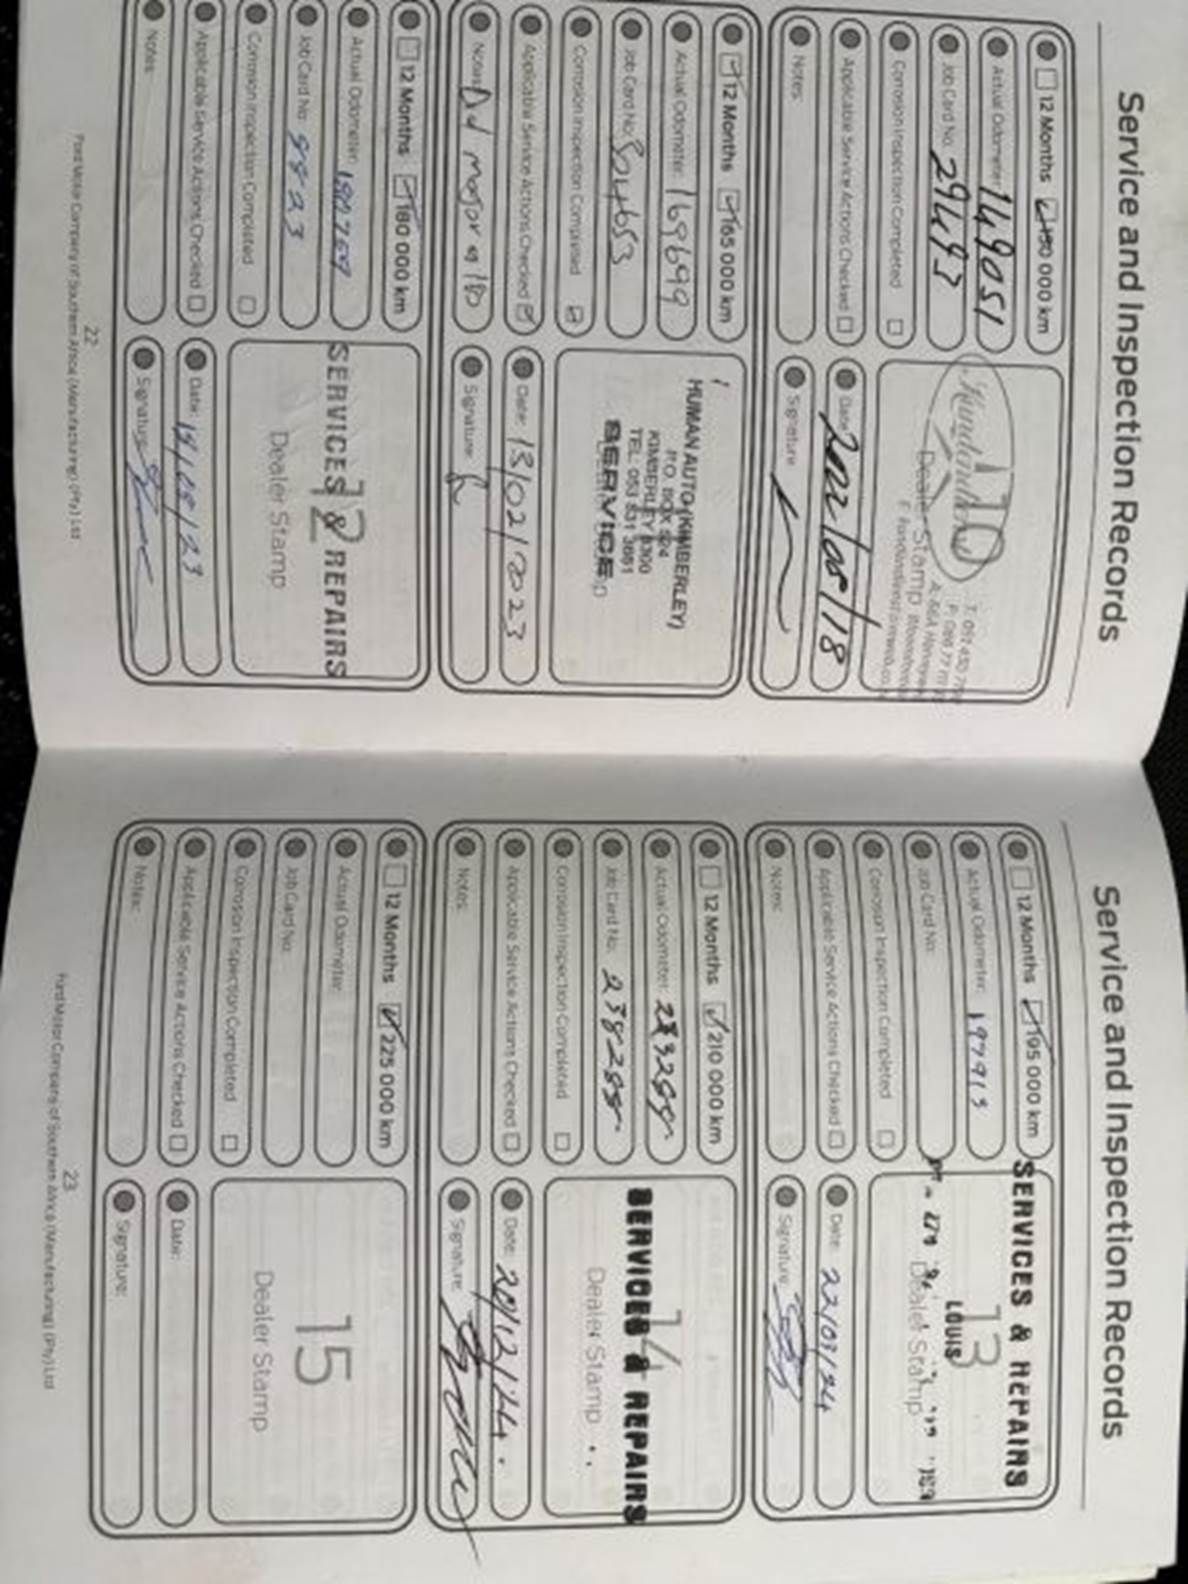 Service and Inspection Records
12 Months 150 000 km
Actual Odometer: 149051
Job Card No: 29493
Corrosion Inspection Completed
Applicable Service Actions Checked
Notes:
10
Dealer Stamp
Date: 2022/08/18
Signature
12 Months 165 000 km
Actual Odometer: 169699
Job Card No:
Corrosion Inspection Completed
Applicable Service Actions Checked
Notes: Did major @ 180
HUMAN AUTO (KIMBERLEY)
P.O. BOX 524
KIMBERLEY 8300
TEL. 053 831 3681
SERVICE
Date: 13/02/2023
Signature:
12 Months 180 000 km
Actual Odometer:
Job Card No: 9823
Corrosion Inspection Completed
Applicable Service Actions Checked
Notes:
SERVICES & REPAIRS
12
Dealer Stamp
Date:
Signature:
22
Ford Motor Company of Southern Africa (Manufacturing) (Pty) Ltd
Service and Inspection Records
12 Months 195 000 km
Actual Odometer: 197913
Job Card No:
Corrosion Inspection Completed
Applicable Service Actions Checked
Notes:
SERVICES & REPAIRS
13
LOUIS
Dealer Stamp
Date: 22/03/24
Signature:
12 Months 210 000 km
Actual Odometer:
Job Card No: 238288
Corrosion Inspection Completed
Applicable Service Actions Checked
Notes:
14
SERVICES & REPAIRS
Dealer Stamp
Date: 20/12/24.
Signature:
12 Months 225 000 km
Actual Odometer:
Job Card No:
Corrosion Inspection Completed
Applicable Service Actions Checked
Notes:
15
Dealer Stamp
Date:
Signature:
23
Ford Motor Company of Southern Africa (Manufacturing) (Pty) Ltd